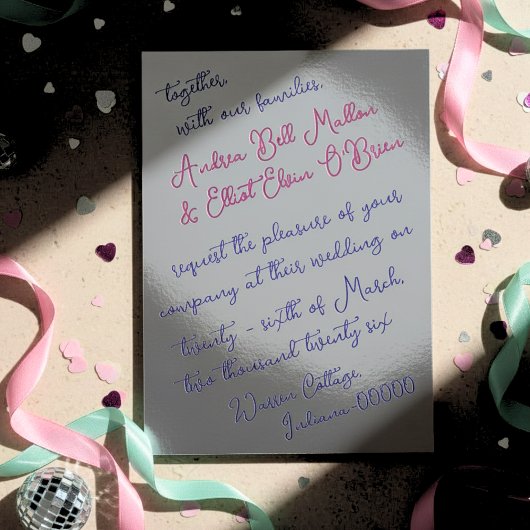 together,
with our families,
Andrea Bell Mallon
& Elliot Elvin O'Brien
request the pleasure of your
company at their wedding on
twenty - sixth of March,
two thousand twenty six
Warren Cottage,
Indiana-00000